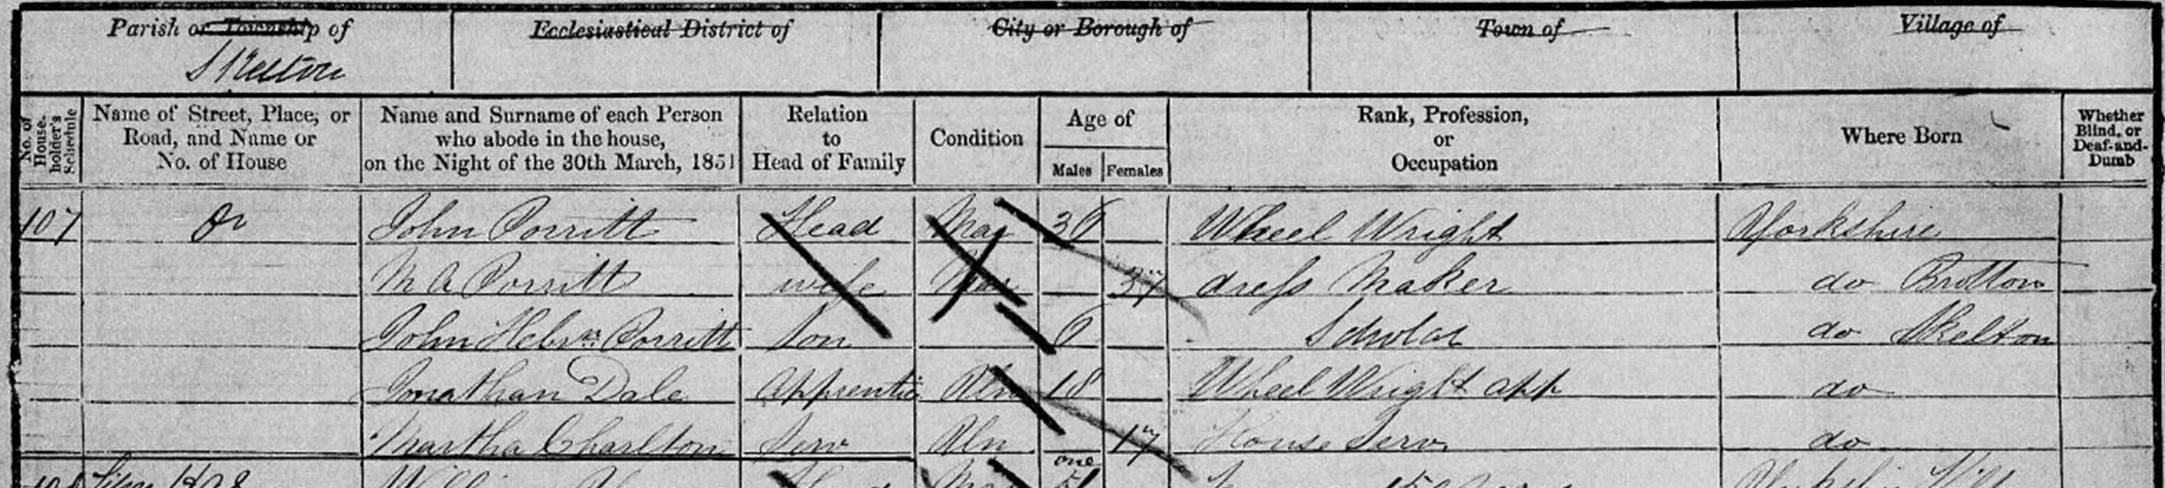 Parish or Township of Ecclesiastical District of City or Borough of Town of Village of
Skelton
No. of House-holder's Schedule Name of Street, Place, or Road, and Name or No. of House Name and Surname of each Person who abode in the house, on the Night of the 30th March, 1851 Relation to Head of Family Condition Age of Males Females Rank, Profession, or Occupation Where Born Whether Blind, or Deaf-and-Dumb
107 John Porritt Head Mar Wheel Wright Yorkshire
M A Porritt wife 37 dress Maker do Brotton
John Porritt Son Scholar do Skelton
Jonathan Dale Apprentic 18 Wheel Wright app do
Martha Charlton Serv Un 17 House Serv do
one